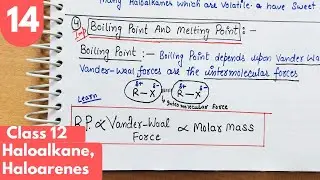 14
Many Haloalkanes which are Volatile. & have Sweet
④ Boiling Point And Melting Point :-
Boiling Point :- Boiling Point depends upon Vander Waal
Vander-Waal forces are the intermolecular forces
δ+ δ- δ+ δ-
R - X R - X
Intermolecular Force
Learn
B.P. ∝ Vander-Waal ∝ Molar mass
Force
Class 12
Haloalkane,
Haloarenes